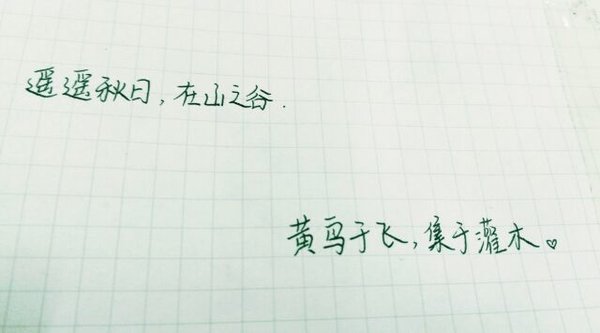 遥遥秋日，在山之谷.
黄鸟于飞，集于灌木。